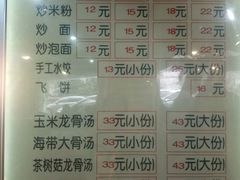 炒米粉 12元 15元 18元 22元
炒面 12元 15元 18元 22元
炒泡面 12元 15元 18元 22元
手工水饺 13元(小份) 25元(大份)
飞饼 16元
玉米龙骨汤 33元(小份) 43元(大份)
海带大骨汤 33元(小份) 43元(大份)
茶树菇龙骨汤 33元(小份) 43元(大份)